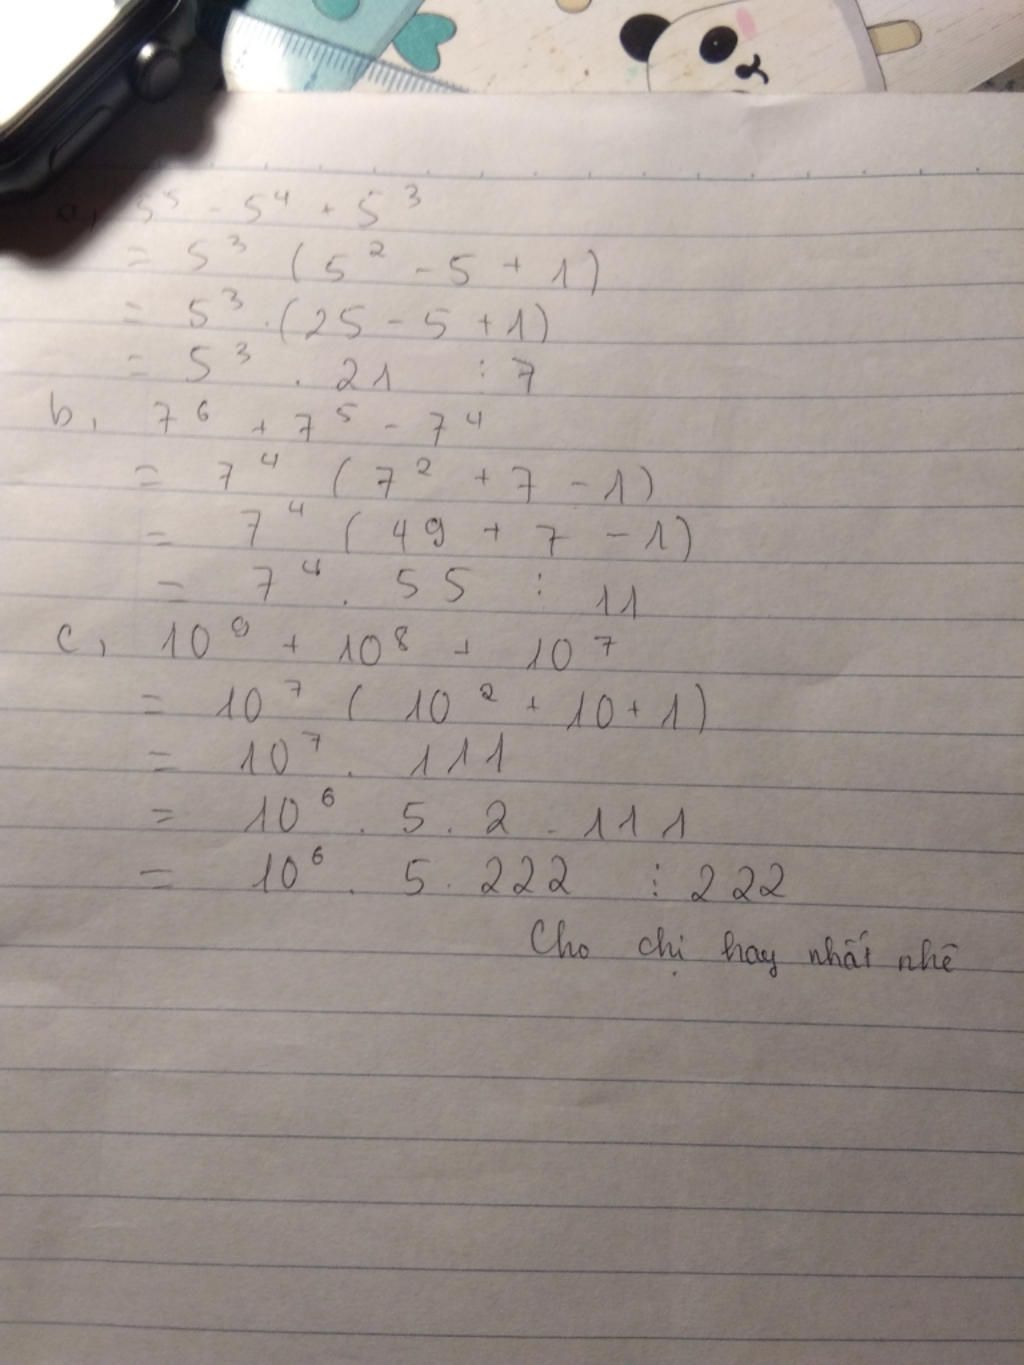 a, 5⁵ - 5⁴ + 5³
= 5³ (5² - 5 + 1)
= 5³ . (25 - 5 + 1)
= 5³ . 21 ⋮ 7
b, 7⁶ + 7⁵ - 7⁴
= 7⁴ (7² + 7 - 1)
= 7⁴ (49 + 7 - 1)
= 7⁴ . 55 ⋮ 11
c, 10⁹ + 10⁸ + 10⁷
= 10⁷ (10² + 10 + 1)
= 10⁷ . 111
= 10⁶ . 5 . 2 . 111
= 10⁶ . 5 . 222 ⋮ 222
Cho chị hay nhất nhé